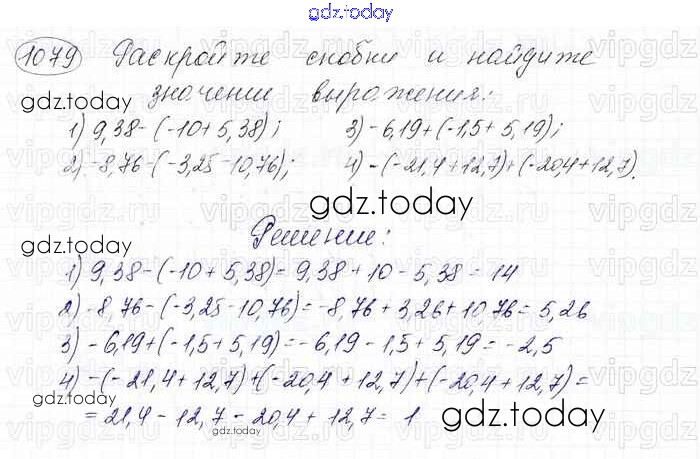 gdz.today
1079 Раскройте скобки и найдите
gdz.today значение выражения:
1) 9,38-(-10+5,38); 3) -6,19+(-1,5+5,19);
2) -8,76-(-3,25-10,76); 4) -(-21,4+12,7)+(-20,4+12,7).
gdz.today
gdz.today Решение:
1) 9,38-(-10+5,38)=9,38+10-5,38=14
2) -8,76-(-3,25-10,76)=-8,76+3,26+10,76=5,26
3) -6,19+(-1,5+5,19)=-6,19-1,5+5,19=-2,5
4) -(-21,4+12,7)+(-20,4+12,7)+(-20,4+12,7)=
=21,4-12,7-20,4+12,7=1 gdz.today
gdz.today